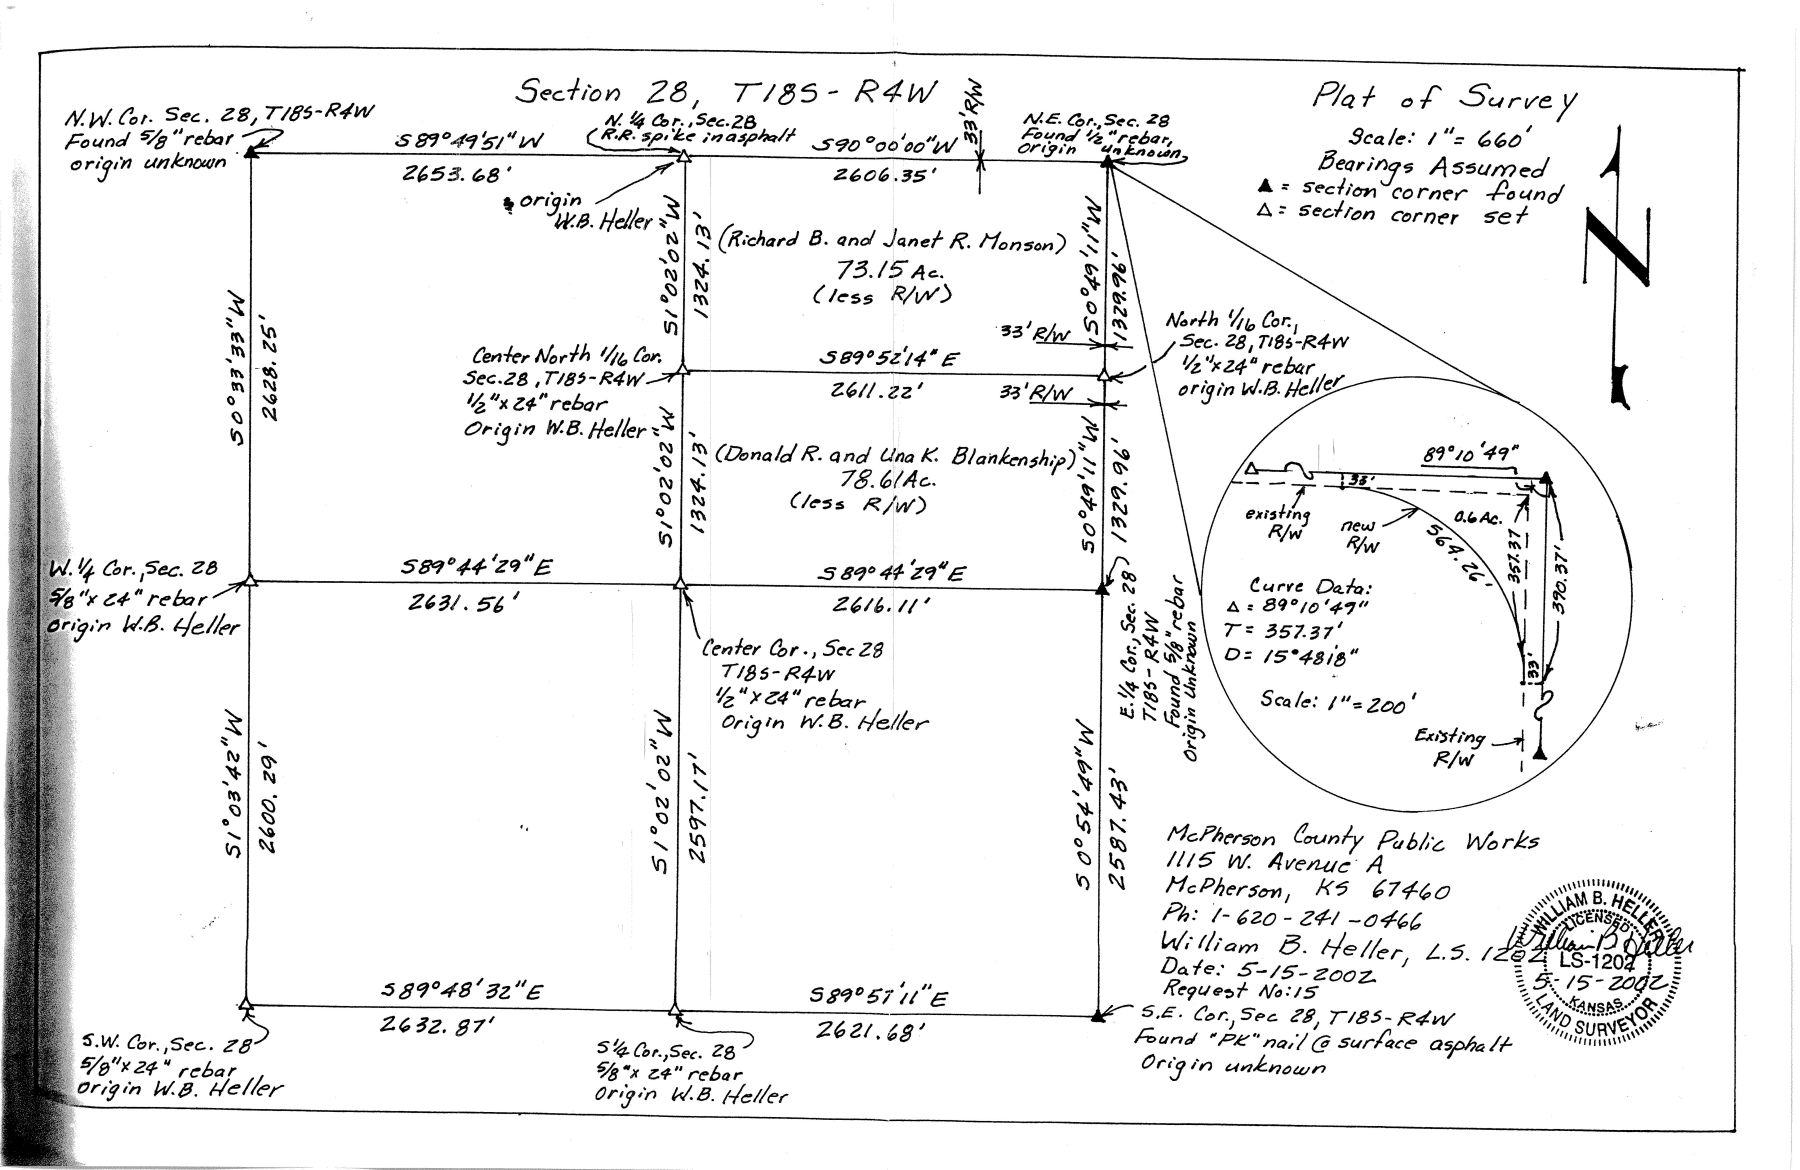 Section 28, T18S-R4W
N.W. Cor. Sec. 28, T18S-R4W
Found 5/8" rebar
origin unknown
S89°49'51"W
2653.68'
N. 1/4 Cor., Sec. 28
R.R. spike in asphalt
origin
W.B. Heller
S90°00'00"W
2606.35'
33' R/W
N.E. Cor., Sec. 28
Found 1/2" rebar,
Origin unknown,
Plat of Survey
Scale: 1"= 660'
Bearings Assumed
▲ = section corner found
△ = section corner set
N
S0°33'33"W
2628.25'
S1°02'02"W
1324.13'
(Richard B. and Janet R. Monson)
73.15 Ac.
(less R/W)
S0°49'11"W
1329.96'
33' R/W
North 1/16 Cor.,
Sec. 28, T18S-R4W
1/2"x24" rebar
origin W.B. Heller
Center North 1/16 Cor.
Sec. 28, T18S-R4W
1/2"x24" rebar
Origin W.B. Heller
S89°52'14"E
2611.22'
33' R/W
S1°02'02"W
1324.13'
(Donald R. and Una K. Blankenship)
78.61 Ac.
(less R/W)
S0°49'11"W
1329.96'
89°10'49"
33'
existing
R/W
new
R/W
0.6 Ac.
564.26'
357.37
390.37'
Curve Data:
△ = 89°10'49"
T = 357.37'
D = 15°48'8"
33'
Scale: 1"=200'
Existing
R/W
W. 1/4 Cor., Sec. 28
5/8"x 24" rebar
Origin W.B. Heller
S89°44'29"E
2631.56'
S89°44'29"E
2616.11'
Center Cor., Sec 28
T18S-R4W
1/2"x 24" rebar
Origin W.B. Heller
E. 1/4 Cor., Sec. 28
T18S-R4W
Found 5/8" rebar
Origin Unknown
S1°03'42"W
2600.29'
S1°02'02"W
2597.17'
S0°54'49"W
2587.43'
McPherson County Public Works
1115 W. Avenue A
McPherson, KS 67460
Ph: 1-620-241-0466
William B. Heller, L.S. 1202
Date: 5-15-2002
Request No: 15
WILLIAM B. HELLER
LICENSED
William B Heller
LS-1202
5-15-2002
KANSAS
LAND SURVEYOR
S89°48'32"E
2632.87'
S89°57'11"E
2621.68'
S.W. Cor., Sec. 28
5/8"x 24" rebar
Origin W.B. Heller
S 1/4 Cor., Sec. 28
5/8"x 24" rebar
Origin W.B. Heller
S.E. Cor., Sec 28, T18S-R4W
Found "PK" nail @ surface asphalt
Origin unknown